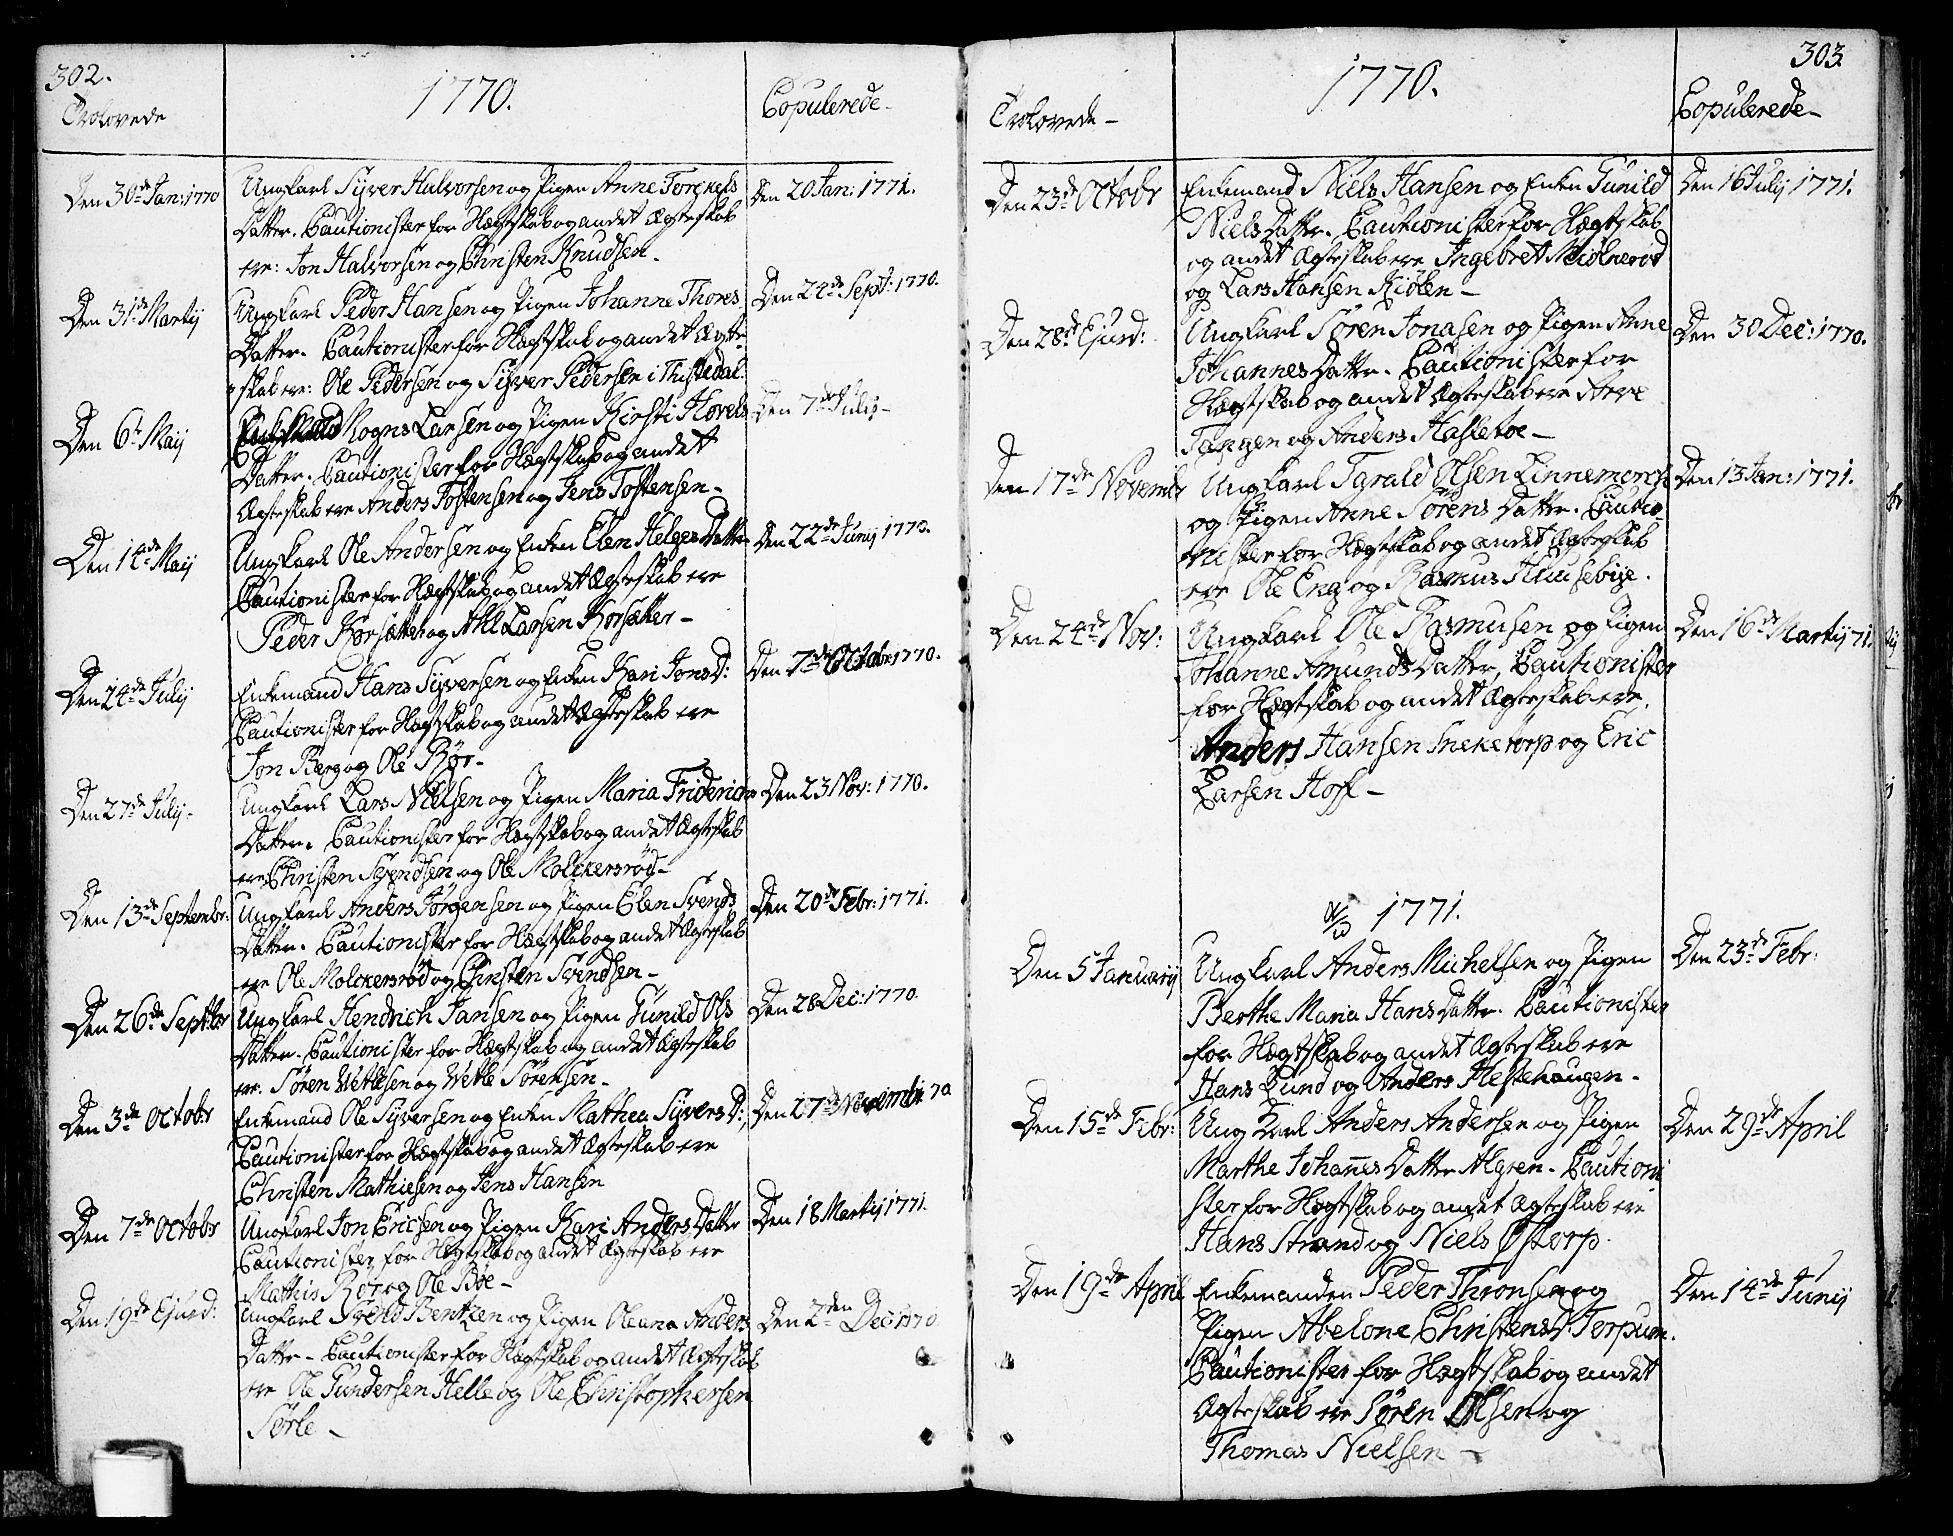 302.
1770.
Trolovede
Copulerede
Den 30de Jan: 1770
Ungkarl Syver Halvorsen og Pigen Anne Torckels
Datter. Cautionister for Hægtskab og andet Ægteskab
ere: Jon Halvorsen og Christen Knudsen
Den 20 Jan: 1771.
Den 31de Martij
Ungkarl Peder Hansen og Pigen Johanne Thores
Datter. Cautionister for Hægtskab og andet Ægte-
skab ere: Ole Pedersen og Syver Pedersen i Thistedal
Den 24de Sept: 1770.
Den 6te Maij
Mogns Larsen og Pigen Kirsti Hovels
Datter. Cautionister for Hægtskab og andet
Ægteskab ere Anders Tostensen og Jens Tostensen
Den 7de Julij
Den 14de Maij
Ungkarl Ole Andersen og Enken Elen Helges Datter
Cautionister for Hægtskab og andet Ægteskab ere
Peder Korsætter og Ahl Larsen Korsætter
Den 22de Junij 1770.
Den 24de Julij
Enkemand Hans Syversen og Enken Kari Jons D:
Cautionister for Hægtskab og andet Ægteskab ere
Jon Berg og Ole Bör
Den 7de Octobr 1770.
Den 27de Julij
Ungkarl Lars Nielsen og Pigen Maria Friderichs
Datter. Cautionister for Hægtskab og andet Ægteskab
ere Christen Svendsen og Ole Molckersröd
Den 23 Nov: 1770.
Den 13de Septembr:
Ungkarl Anders Jörgensen og Pigen Elen Svends
Datter. Cautionister for Hægtskab og andet Ægteskab
ere Ole Molckersröd og Christen Svendsen
Den 20de Febr: 1771.
Den 26de Septbr
Ungkarl Hendrich Jansen og Pigen Gunild Ols
Datter. Cautionister for Hægtskab og andet Ægteskab
ere: Sören Wetlesen og Wetle Sörensen
Den 28 Dec: 1770
Den 3de Octobr
Enkemand Ole Syversen og Enken Mathea Syvers D:,
Cautionister for Hægtskab og andet Ægteskab ere
Christen Mathiesen og Jens Hansen
Den 27de Novembr 70
Den 7de Octobr
Ungkarl Jon Ericsen og Pigen Kari Anders Datter
Cautionister for Hægtskab og andet Ægteskab ere
Mathis Bör og Ole Böe
Den 18 Martij 1771.
Den 19de Ejusd:
Ungkarl Svend Bentzen og Pigen Oleana Anders
Datter. Cautionister for Hægtskab og andet Ægteskab
ere Ole Gundersen Helle og Ole Christophersen
Sörle
Den 2den Dec: 1770
303.
1770.
Trolovede
Copulerede
Den 23de Octobr
Enkemand Niels Hansen og Enken Gunild
Niels Datter. Cautionister for Hægtskab
og andet Ægteskab ere Ingebret Miölneröd
og Lars Hansen Kiölen
Den 16 Julij 1771.
Den 28de Ejusd:
Ungkarl Sören Jonasen og Pigen Anne
Johannes Datter. Cautionister for
Hægtskab og andet Ægteskab ere Arve
Tangen og Anders Hasletoe
Den 30 Dec: 1770.
Den 17de Novembr
Ungkarl Tarald Olsen Linnemorch
og Pigen Anne Sörens Datter. Cautio-
nister for Hægtskab og andet Ægteskab
ere Ole Eng og Rasmus Huusebye.
Den 13 Jan: 1771.
Den 24de Nov:
Ungkarl Ole Rasmusen og Pigen
Johanne Amunds Datter, Cautionister
for Hægtskab og andet Ægteskab ere,
Anders Hansen Sneketorp og Eric
Larsen Hoff
Den 16de Martij 71.
1771.
Den 5 Januarij
Ungkarl Anders Michelsen og Pigen
Berthe Maria Hans Datter. Cautionister
for Hægtskab og andet Ægteskab ere
Hans Lund og Anders Hestehaugen.
Den 23de Febr:
Den 15de Febr:
Ung Karl Anders Andersen og Pigen
Marthe Johannes Datter Algren. Cautioni
ster for Hægtskab og andet Ægteskab ere
Hans Strand og Niels Östorp.
Den 29de April
Den 19de April
Enkemanden Peder Thronsen og
Pigen Abelone Christens D: Torpum.
Cautionister for Hægtskab og andet
Ægteskab ere Sören Olsen og
Thomas Nielsen
Den 14de Junij